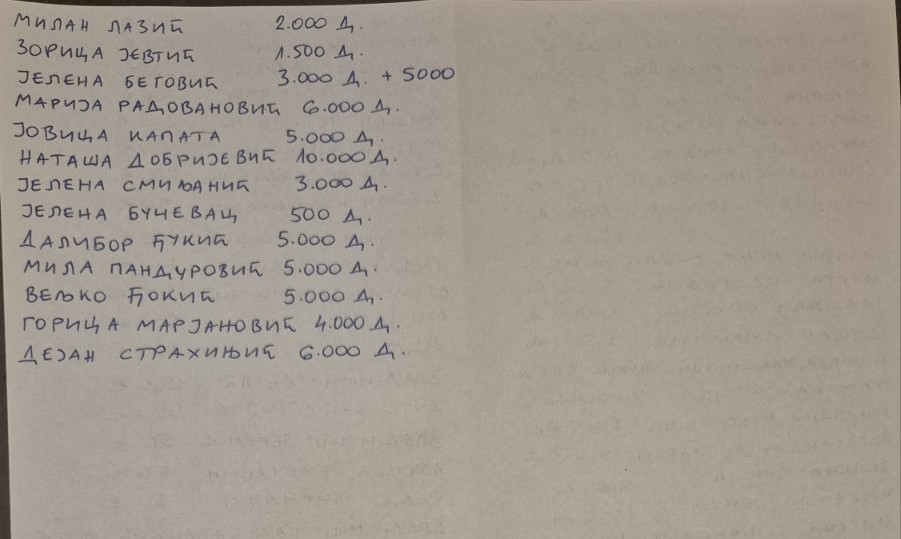 МИЛАН ЛАЗИЋ 2.000 Д.
ЗОРИЦА ЈЕВТИЋ 1.500 Д.
ЈЕЛЕНА БЕГОВИЋ 3.000 Д. + 5000
МАРИЈА РАДОВАНОВИЋ 6.000 Д.
ЈОВИЦА КАПАТА 5.000 Д.
НАТАША ДОБРИЈЕВИЋ 10.000 Д.
ЈЕЛЕНА СМИЉАНИЋ 3.000 Д.
ЈЕЛЕНА БУЧЕВАЦ 500 Д.
ДАЛИБОР ЂУКИЋ 5.000 Д.
МИЛА ПАНДУРОВИЋ 5.000 Д.
ВЕЉКО ЂОКИЋ 5.000 Д.
ГОРИЦА МАРЈАНОВИЋ 4.000 Д.
ДЕЈАН СТРАХИЊИЋ 6.000 Д.